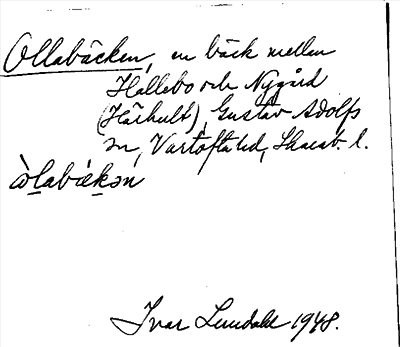 Ollabäcken, en bäck mellan
Hallebo och Nygård
(Härhult), Gustav Adolfs
sn, Vartofta hd, Skarab. l.
òlabækən
Ivar Lundahl 1948.